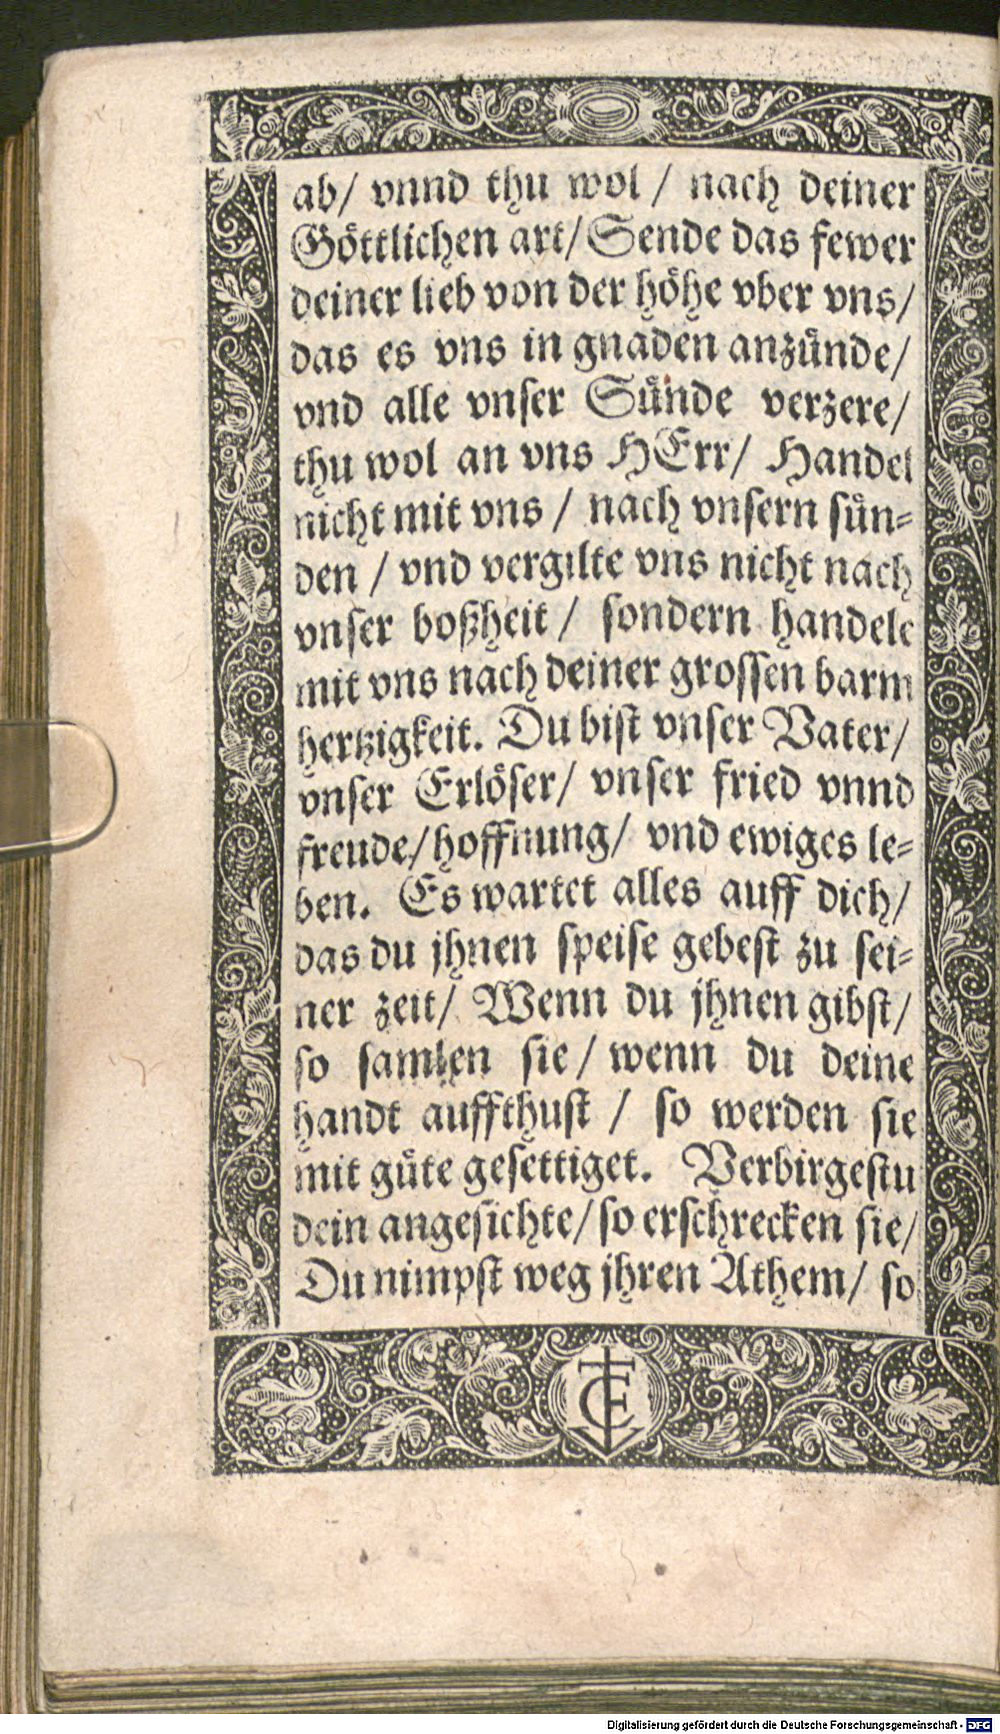 ab/ vnnd thu wol / nach deiner
Göttlichen art/ Sende das fewer
deiner lieb von der höhe vber vns/
das es vns in gnaden anzünde/
vnd alle vnser Sünde verzere/
thu wol an vns HErr/ Handel
nicht mit vns / nach vnsern sün-
den / vnd vergilte vns nicht nach
vnser boßheit / sondern handele
mit vns nach deiner grossen barm
hertzigkeit. Du bist vnser Vater/
vnser Erlöser/ vnser fried vnnd
freude/ hoffnung/ vnd ewiges le-
ben. Es wartet alles auff dich/
das du jhnen speise gebest zu sei-
ner zeit/ Wenn du jhnen gibst/
so samlen sie / wenn du deine
handt auffthust / so werden sie
mit güte gesettiget. Verbirgestu
dein angesichte/ so erschrecken sie/
Du nimpst weg jhren Athem/ so
Digitalisierung gefördert durch die Deutsche Forschungsgemeinschaft - DFG